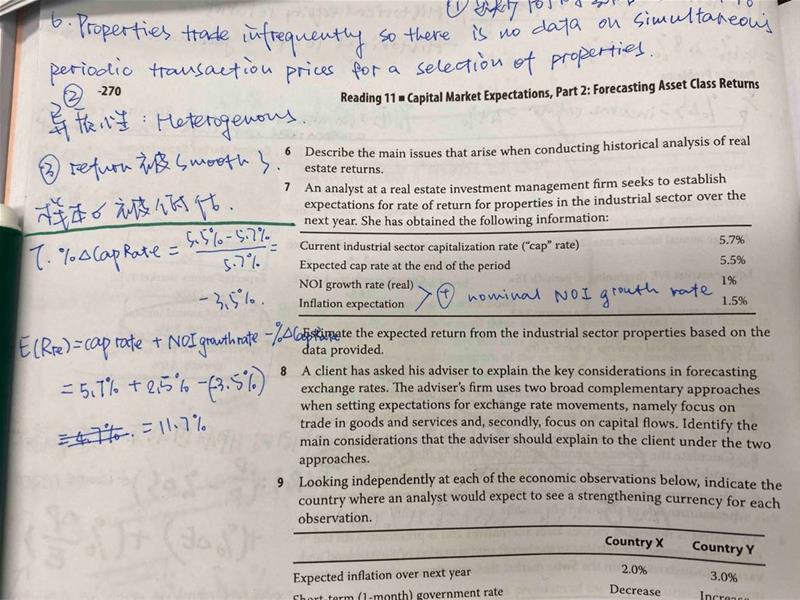 6. Properties trade infrequently so there is no data on simultaneous
periodic transaction prices for a selection of properties.
②
-270
Reading 11 ■ Capital Market Expectations, Part 2: Forecasting Asset Class Returns
: Heterogenous.
③ return 被 smooth.
样本σ被低估.
7. %ΔCapRate = (5.5%-5.7%)/5.7% =
-3.5%.
E(Rre)=cap rate + NOI growth rate - %ΔCapRate
= 5.7% + 2.5% - (-3.5%)
= 11.7%
6 Describe the main issues that arise when conducting historical analysis of real
estate returns.
7 An analyst at a real estate investment management firm seeks to establish
expectations for rate of return for properties in the industrial sector over the
next year. She has obtained the following information:
Current industrial sector capitalization rate (“cap” rate) 5.7%
Expected cap rate at the end of the period 5.5%
NOI growth rate (real) 1%
> ⊕ nominal NOI growth rate
Inflation expectation 1.5%
Estimate the expected return from the industrial sector properties based on the
data provided.
8 A client has asked his adviser to explain the key considerations in forecasting
exchange rates. The adviser’s firm uses two broad complementary approaches
when setting expectations for exchange rate movements, namely focus on
trade in goods and services and, secondly, focus on capital flows. Identify the
main considerations that the adviser should explain to the client under the two
approaches.
9 Looking independently at each of the economic observations below, indicate the
country where an analyst would expect to see a strengthening currency for each
observation.
Country X Country Y
Expected inflation over next year 2.0% 3.0%
Short-term (1-month) government rate Decrease